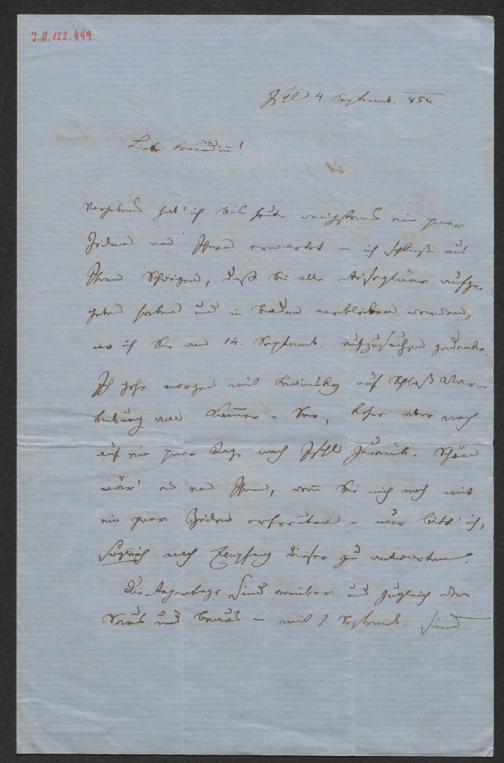 I.N. 122.499
Ischl 4. Septemb. 854.
Liebe Freundin!
Vergebens hab' ich bis heute wenigstens ein paar
Zeilen von Ihnen erwartet – ich schließe aus
Ihrem Schweigen, daß Sie alle Reisepläne aufge-
geben haben und in Baden verbleiben werden,
wo ich Sie am 14. Septemb. aufzusuchen gedenke.
Ich gehe morgen mit Lewinsky auf Schloß
am Kammer-See, kehre aber noch
auf ein paar Tage nach Ischl zurück. Schön
wär' es von Ihnen, wenn Sie mich noch mit
ein paar Zeilen erfreuten – nur bitt' ich,
sogleich nach Empfang dieser zu antworten.
Die Regentage sind vorüber und zugleich der
Saus und Braus – mit 1. Septemb. sind